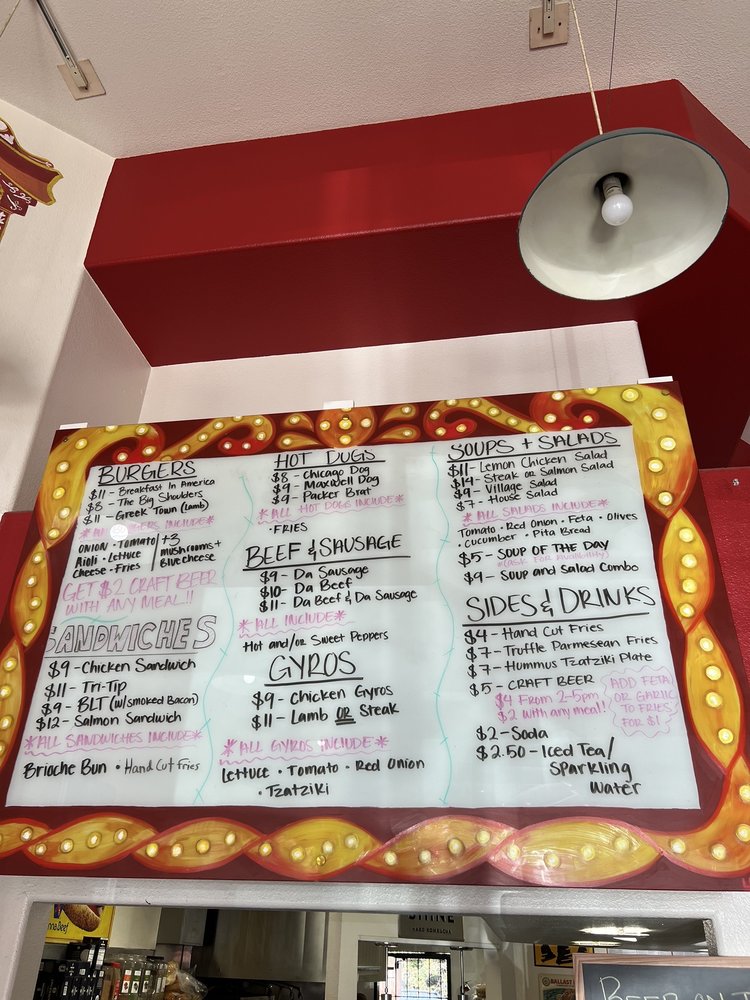 BURGERS
$11 - Breakfast In America
$8 - The Big Shoulders
$11 - Greek Town (Lamb)
INCLUDE*
ONION · Tomato
Aioli · Lettuce
Cheese · Fries
+3
mushrooms +
Blue cheese
GET $2 CRAFT BEER
WITH ANY MEAL!!
SANDWICHES
$9 - Chicken Sandwich
$11 - Tri-Tip
$9 - BLT (w/smoked Bacon)
$12 - Salmon Sandwich
*ALL SANDWICHES INCLUDE*
Brioche Bun · Hand Cut Fries
HOT DOGS
$8 - Chicago Dog
$9 - Maxwell Dog
$9 - Packer Brat
*ALL HOT DOGS INCLUDE*
· FRIES
BEEF & SAUSAGE
$9 - Da Sausage
$10 - Da Beef
$11 - Da Beef & Da Sausage
*ALL INCLUDE*
Hot and/or Sweet Peppers
GYROS
$9 - Chicken Gyros
$11 - Lamb OR Steak
*ALL GYROS INCLUDE*
Lettuce · Tomato · Red Onion
· Tzatziki
SOUPS + SALADS
$11 - Lemon Chicken Salad
$14 - Steak or Salmon Salad
$9 - Village Salad
$7 - House Salad
*ALL SALADS INCLUDE*
Tomato · Red Onion · Feta · Olives
· Cucumber · Pita Bread
$5 - SOUP OF THE DAY
(ASK FOR Availability)
$9 - Soup and Salad Combo
SIDES & DRINKS
$4 - Hand Cut Fries
$7 - Truffle Parmesean Fries
$7 - Hummus Tzatziki Plate
$5 - CRAFT BEER
$4 From 2-5pm
$2 with any meal!!
ADD FETA
OR GARLIC
TO FRIES
FOR $1!
$2 - Soda
$2.50 - Iced Tea/
Sparkling
Water
Beef
HARD KOMBUCHA
BALLAST